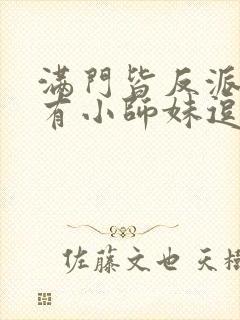 滿門皆反派
有小師妹逗
佐藤文也 天樹